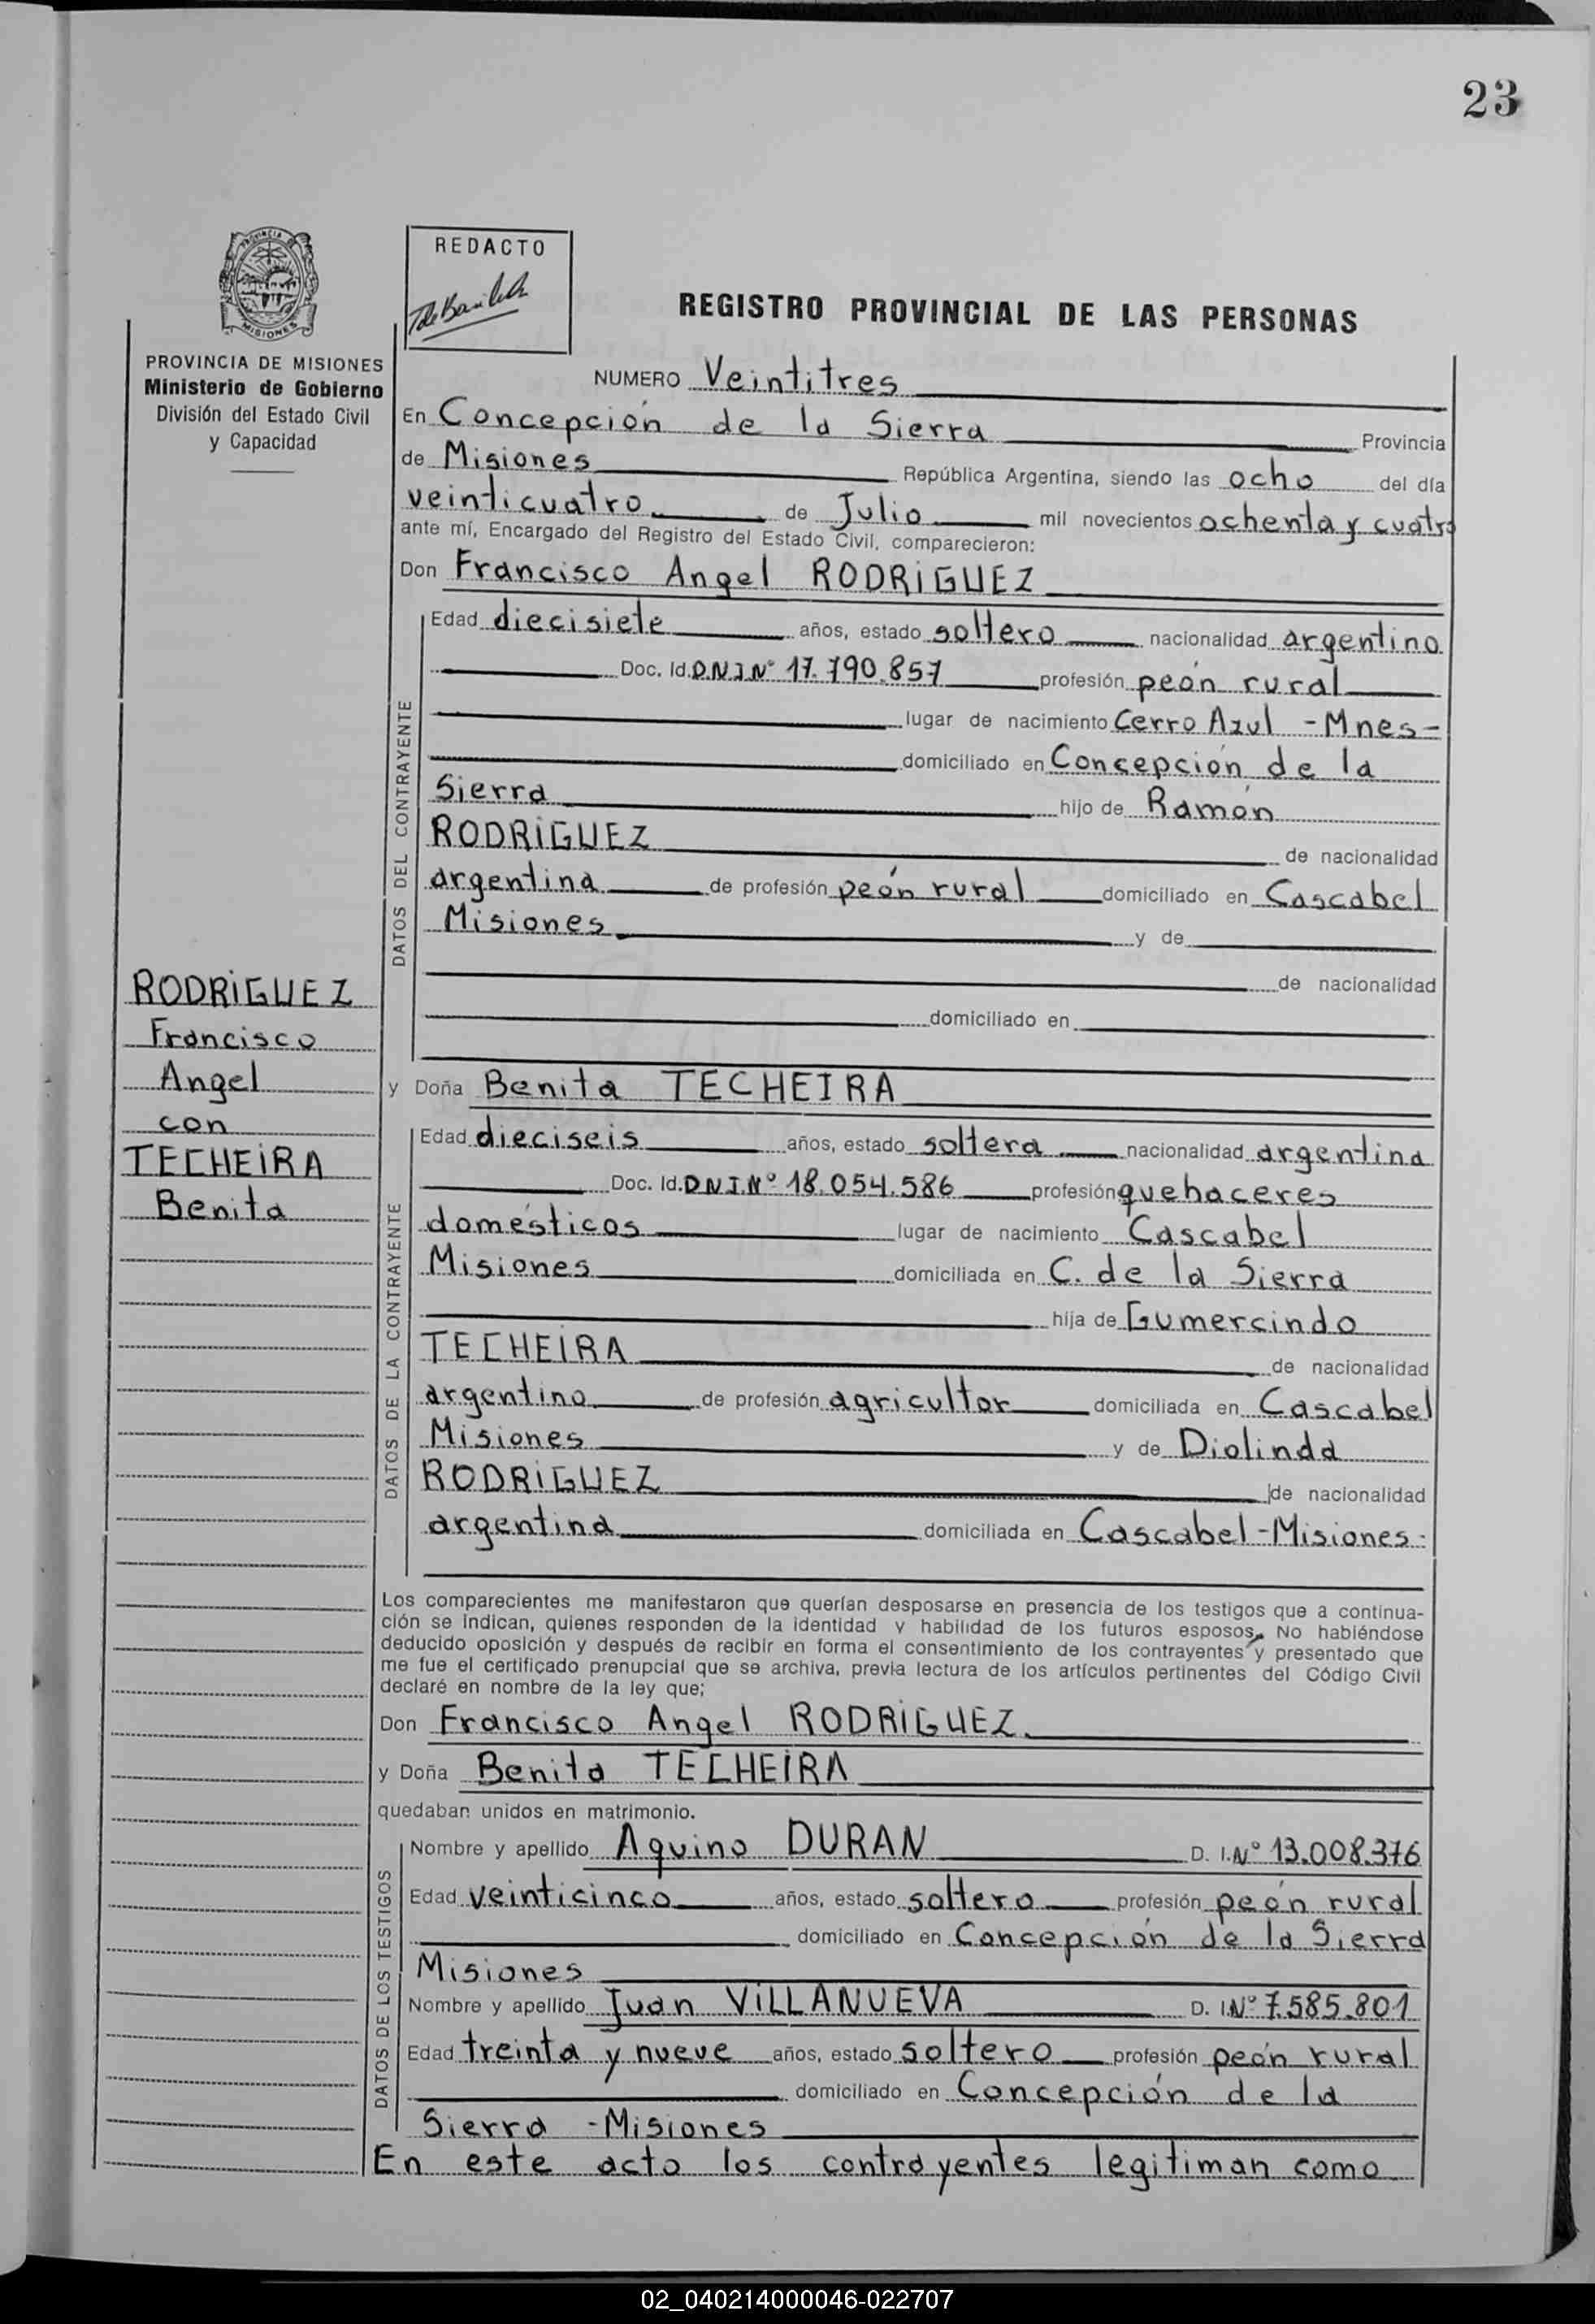 23
PROVINCIA DE MISIONES
REDACTO
REGISTRO PROVINCIAL DE LAS PERSONAS
PROVINCIA DE MISIONES
Ministerio de Gobierno
División del Estado Civil
y Capacidad
NUMERO Veintitres
En Concepción de la Sierra Provincia
de Misiones República Argentina, siendo las ocho del día
veinticuatro de Julio mil novecientos ochenta y cuatro
ante mí, Encargado del Registro del Estado Civil, comparecieron:
Don Francisco Angel RODRIGUEZ
DATOS DEL CONTRAYENTE
Edad diecisiete años, estado soltero nacionalidad argentino
Doc. Id. D.N.I Nº 17.790.857 profesión peón rural
lugar de nacimiento Cerro Azul - Mnes-
domiciliado en Concepción de la
Sierra hijo de Ramón
RODRIGUEZ de nacionalidad
argentina de profesión peón rural domiciliado en Cascabel
Misiones y de
de nacionalidad
domiciliado en
RODRIGUEZ
Francisco
Angel
con
TECHEIRA
Benita
y Doña Benita TECHEIRA
DATOS DE LA CONTRAYENTE
Edad dieciseis años, estado soltera nacionalidad argentina
Doc. Id. D.N.I. Nº 18.054.586 profesión quehaceres
domésticos lugar de nacimiento Cascabel
Misiones domiciliada en C. de la Sierra
hija de Gumercindo
TECHEIRA de nacionalidad
argentino de profesión agricultor domiciliada en Cascabel
Misiones y de Diolinda
RODRIGUEZ de nacionalidad
argentina domiciliada en Cascabel-Misiones-
Los comparecientes me manifestaron que querían desposarse en presencia de los testigos que a continua-
ción se indican, quienes responden de la identidad y habilidad de los futuros esposos. No habiéndose
deducido oposición y después de recibir en forma el consentimiento de los contrayentes y presentado que
me fue el certificado prenupcial que se archiva, previa lectura de los artículos pertinentes del Código Civil
declaré en nombre de la ley que;
Don Francisco Angel RODRIGUEZ
y Doña Benita TECHEIRA
quedaban unidos en matrimonio.
DATOS DE LOS TESTIGOS
Nombre y apellido Aquino DURAN D. I. Nº 13.008.376
Edad veinticinco años, estado soltero profesión peón rural
domiciliado en Concepción de la Sierra
Misiones
Nombre y apellido Juan VILLANUEVA D. I. Nº 7.585.801
Edad treinta y nueve años, estado soltero profesión peón rural
domiciliado en Concepción de la
Sierra -Misiones
En este acto los contrayentes legitiman como
02_040214000046-022707